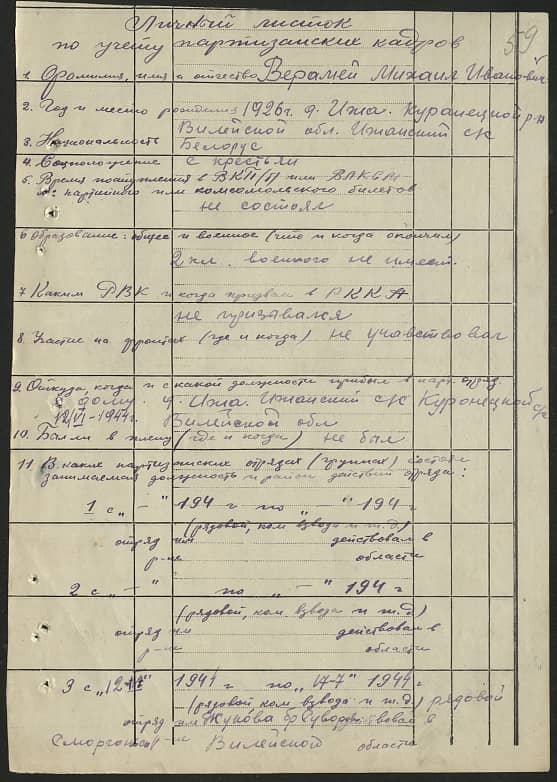 59
Личный листок
по учету партизанских кадров
1. Фамилия, имя и отчество Верамей Михаил Иванович
2. Год и место рождения 1926г. д. Ижа. Куранецкой р-н
Вилейской обл. Ижанский с/с
3. Национальность Белорус
4. Соцположение с крестьян
5. Время поступления в ВКП/П или ВЛКСМ
№ партийного или комсомольского билетов
не состоял
6 Образование: общее и военное (что и когда окончил)
2 кл. военного не имеет.
7 Каким РВК и когда призван в РККА
не призывался
8. Участие на фронтах (где и когда) не учавствовал
9. Откуда, когда и с какой должности прибыл в парт. отряд.
с дому. д. Ижа. Ижанский с/с Куронецкой
12/VI-1944г. Вилейской обл
10. Был ли в плену (где и когда) не был
11 В каких партизанских отрядах (группах) состоял
занимаемая должность и район действий отряда:
1 с „ - " 194 г по „ - " 194 г
(рядовой, ком взвода и т.д.)
отряд им действовал в
р-не области
2 с „ - " по „ - " 194 г
(рядовой, ком взвода и т.д.)
отряд им действовал в
р-не области
3 с „12 " 1944 г по „17-7" 1944 г
(рядовой, ком взвода и т.д.) рядовой
отряд им Жукова бр Суворова действовал в
р-не Вилейской области